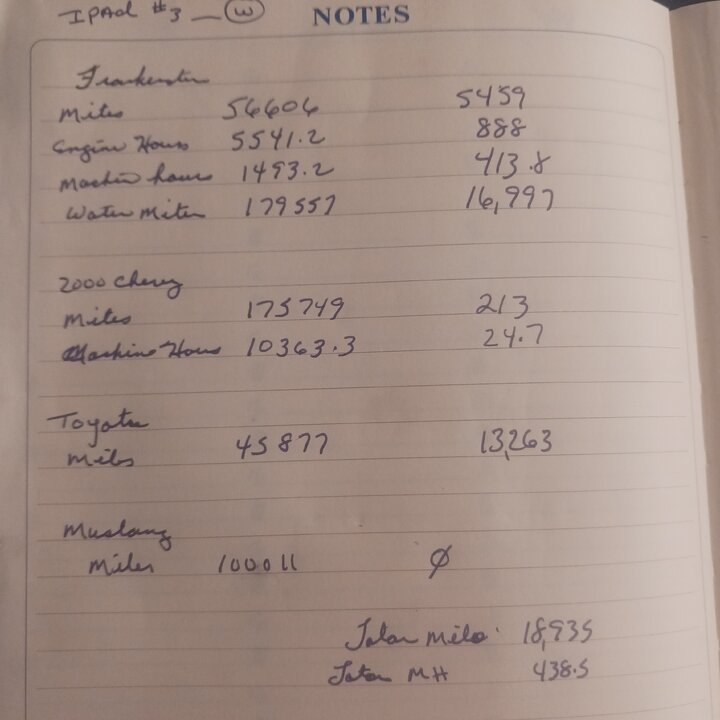 IPAd #3 — W NOTES
Frankenstein
Miles 56606 5459
Engine Hours 5541.2 888
Machine hours 1493.2 413.8
Water Miter 179557 16,997
2000 Chevy
Miles 175749 213
Machine Hours 10363.3 24.7
Toyota
Miles 45877 13,263
Mustang
Miles 100011 Ø
Total Miles 18,935
Total MH 438.5